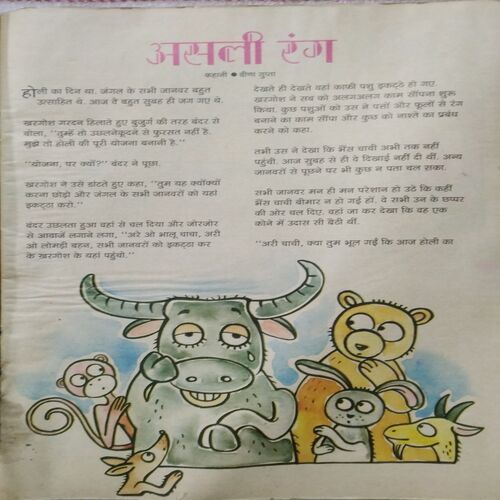 असली रंग
कहानी ● वीणा गुप्ता
होली का दिन था. जंगल के सभी जानवर बहुत
उत्साहित थे. आज वे बहुत सुबह ही जग गए थे.
खरगोश गरदन हिलाते हुए बुजुर्ग की तरह बंदर से
बोला, ''तुम्हें तो उछलनेकूदने से फुरसत नहीं है.
मुझे तो होली की पूरी योजना बनानी है.''
''योजना, पर क्यों?'' बंदर ने पूछा.
खरगोश ने उसे डांटते हुए कहा, ''तुम यह क्योंक्यों
करना छोड़ो और जंगल के सभी जानवरों को यहां
इकट्ठा करो.''
बंदर उछलता हुआ वहां से चल दिया और जोरजोर
से आवाजें लगाने लगा, ''अरे ओ भालू चाचा, अरी
ओ लोमड़ी बहन, सभी जानवरों को इकट्ठा कर
के खरगोश के यहां पहुंचो.''
देखते ही देखते वहां काफी पशु इकट्ठे हो गए.
खरगोश ने सब को अलगअलग काम सौंपना शुरू
किया. कुछ पशुओं को उस ने पत्तों और फूलों से रंग
बनाने का काम सौंपा और कुछ को नाश्ते का प्रबंध
करने को कहा.
तभी उस ने देखा कि भैंस चाची अभी तक नहीं
पहुंची. आज सुबह से ही वे दिखाई नहीं दी थीं. अन्य
जानवरों से पूछने पर भी कुछ न पता चल सका.
सभी जानवर मन ही मन परेशान हो उठे कि कहीं
भैंस चाची बीमार न हो गई हों. वे सभी उन के छप्पर
की ओर चल दिए. वहां जा कर देखा कि वह एक
कोने में उदास सी बैठी थीं.
''अरी चाची, क्या तुम भूल गईं कि आज होली का